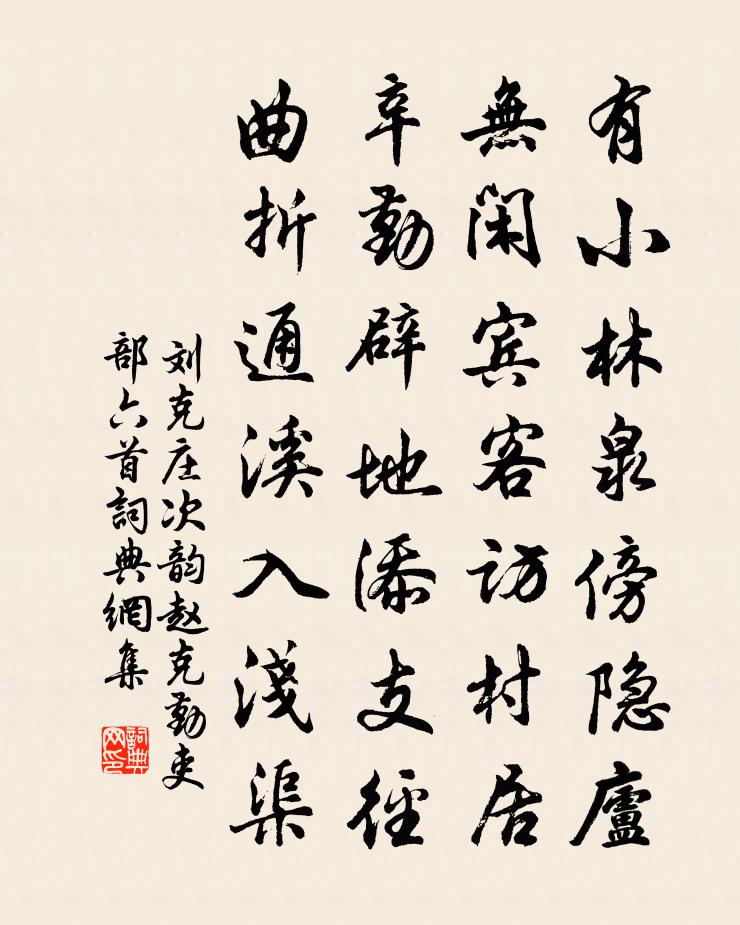 有小林泉傍隐廬
無閑賓客访村居
辛勤辟地添支徑
曲折通溪入淺渠
刘克庄次韵赵克勤吏
部六首詞典網集
詞典
网印